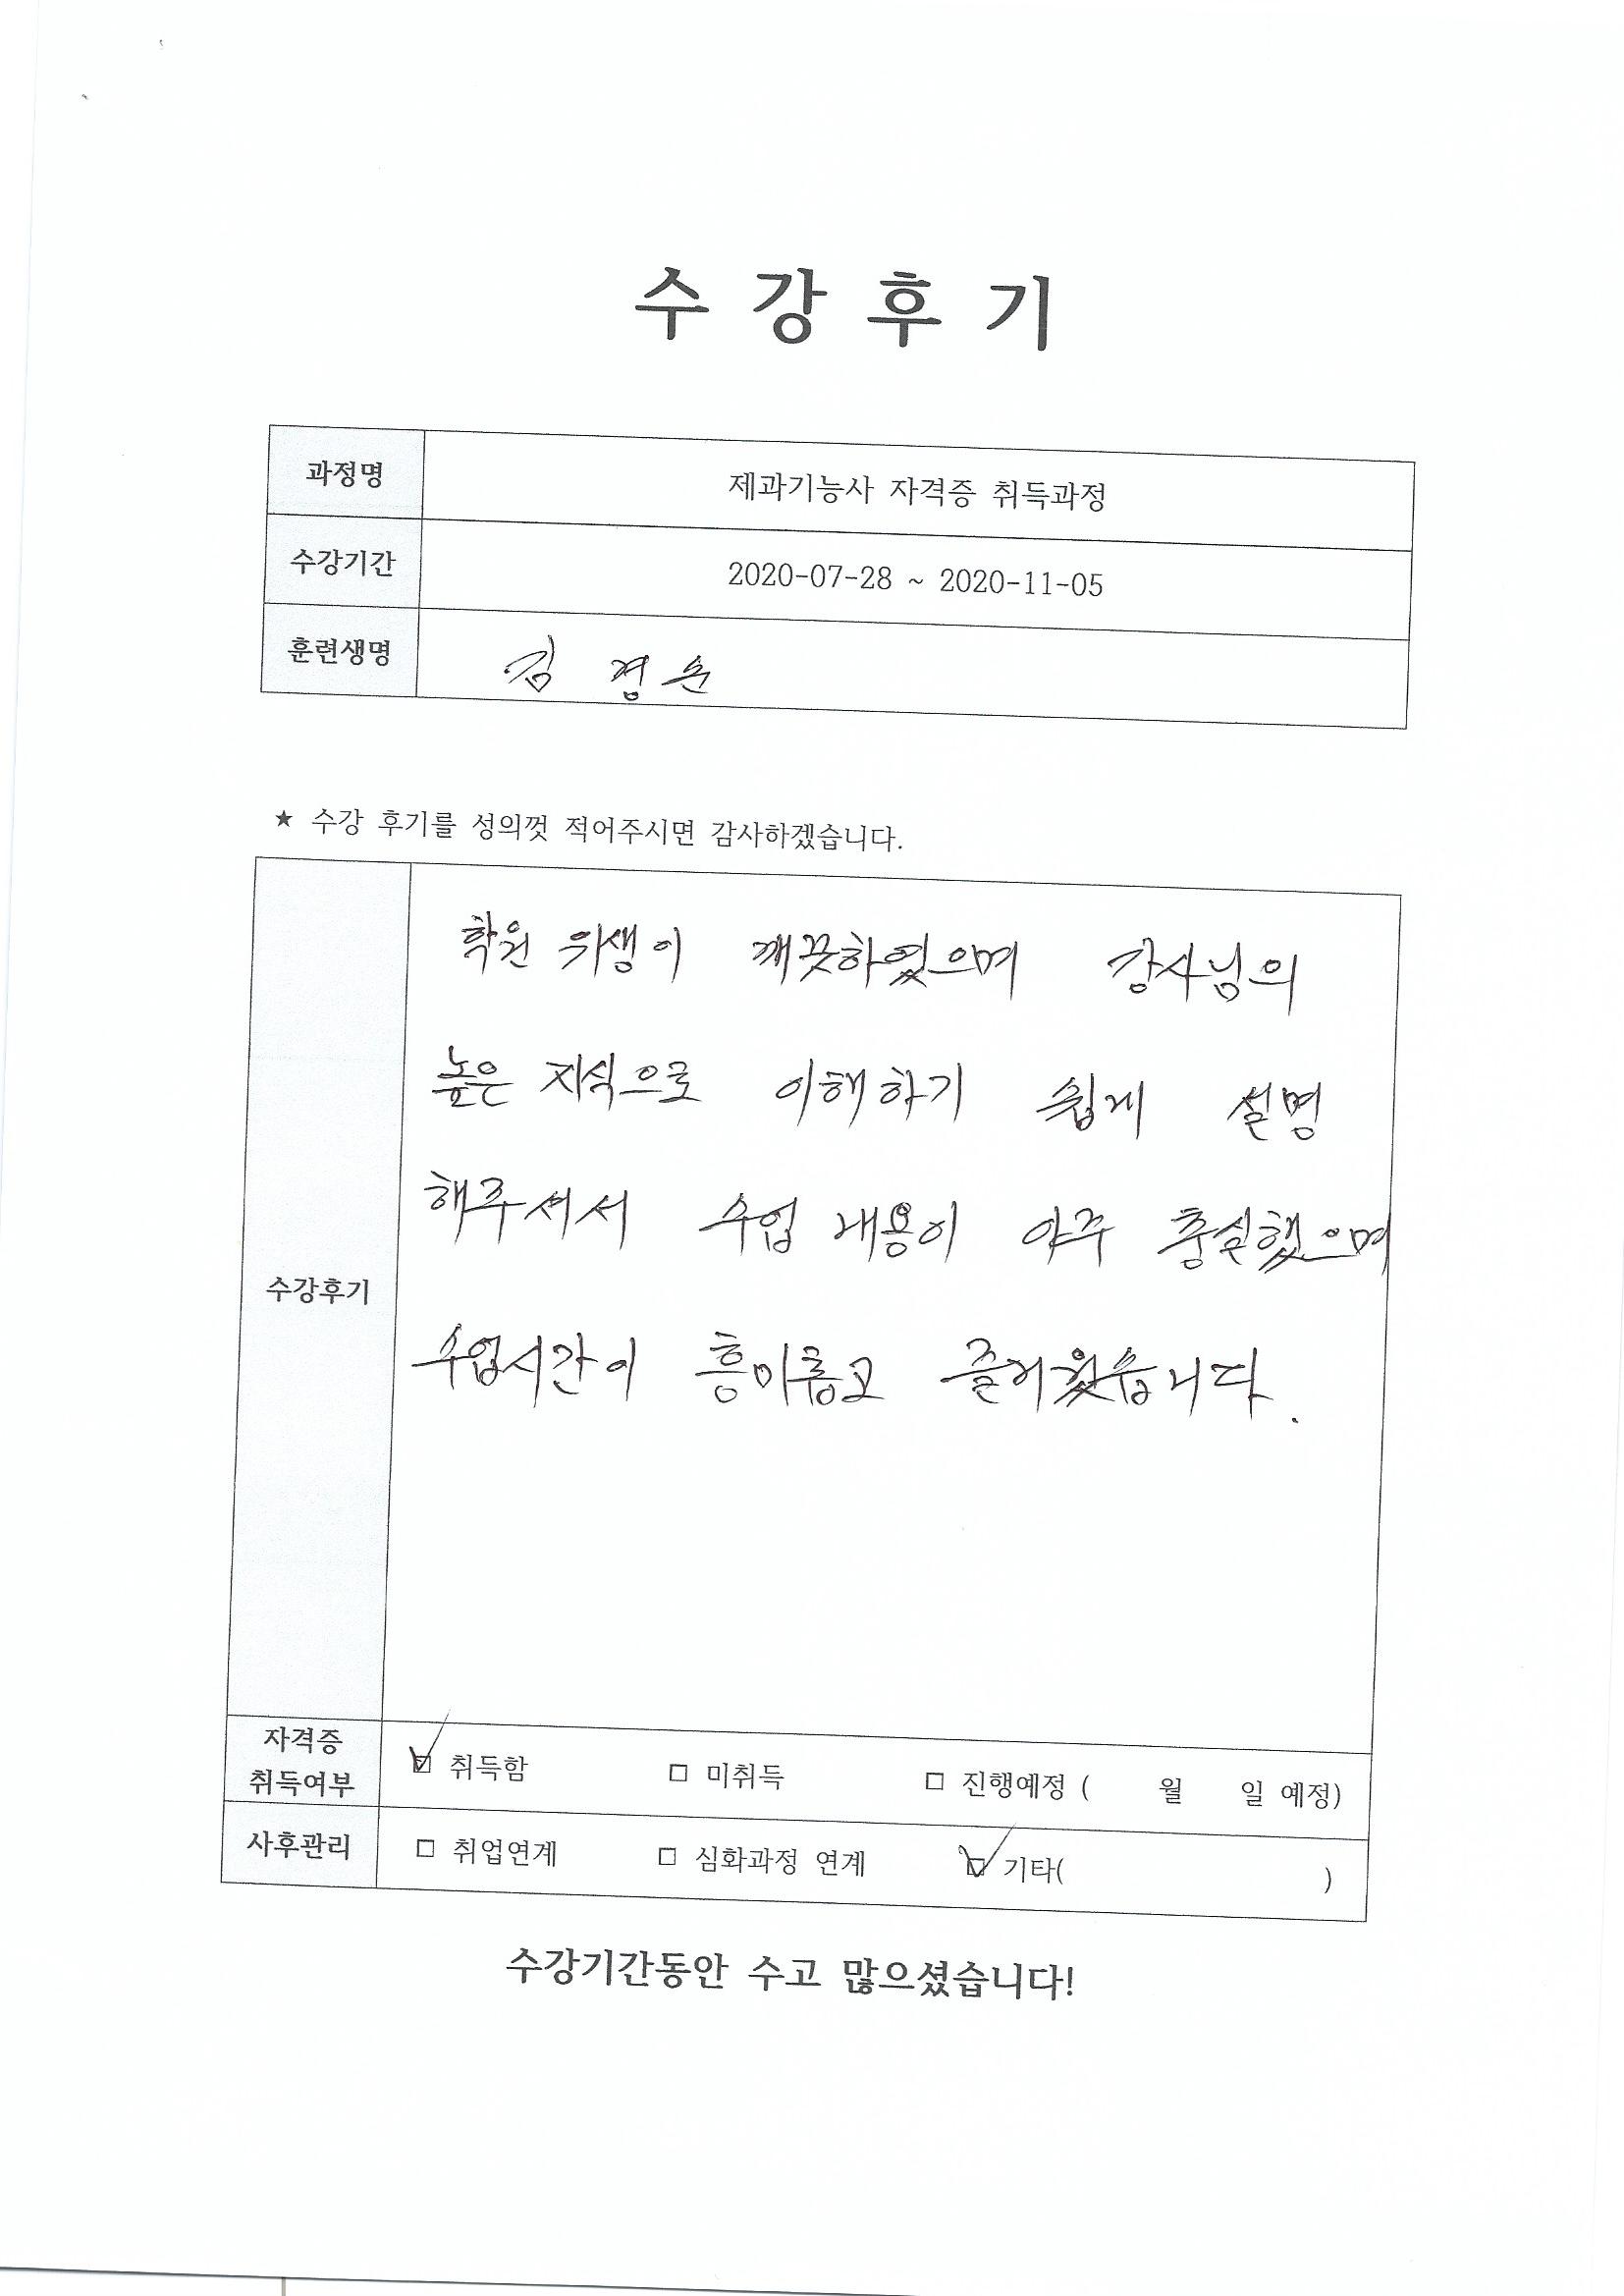 수 강 후 기
과정명 제과기능사 자격증 취득과정
수강기간 2020-07-28 ~ 2020-11-05
훈련생명 김 경순
★ 수강 후기를 성의껏 적어주시면 감사하겠습니다.
학원 위생이 깨끗하였으며 강사님의
높은 지식으로 이해하기 쉽게 설명
해주셔서 수업 내용이 아주 충실했으며
수강후기
수업시간이 흥미롭고 즐거웠습니다.
자격증
취득여부
☑ 취득함 □ 미취득 □ 진행예정 ( 월 일 예정)
사후관리 □ 취업연계 □ 심화과정 연계 ☑ 기타( )
수강기간동안 수고 많으셨습니다!